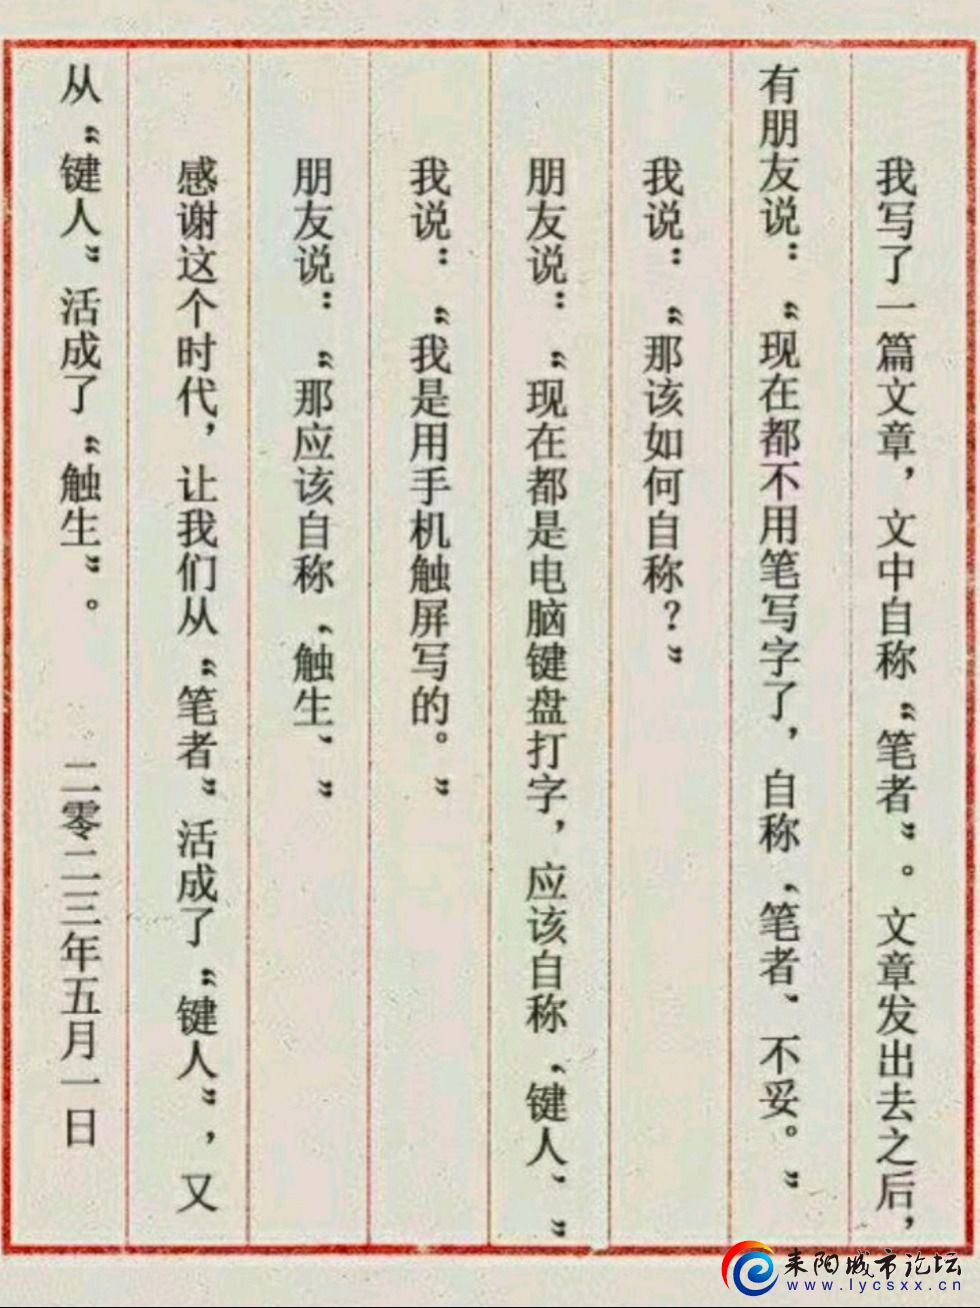 我写了一篇文章，文中自称“笔者”。文章发出去之后，
有朋友说：“现在都不用笔写字了，自称‘笔者’不妥。”
我说：“那该如何自称？”
朋友说：“现在都是电脑键盘打字，应该自称‘键人’”
我说：“我是用手机触屏写的。”
朋友说：“那应该自称‘触生’”
感谢这个时代，让我们从“笔者”活成了“键人”，又
从“键人”活成了“触生”。 二零二三年五月一日
耒阳城市论坛
www.lycsxx.cn